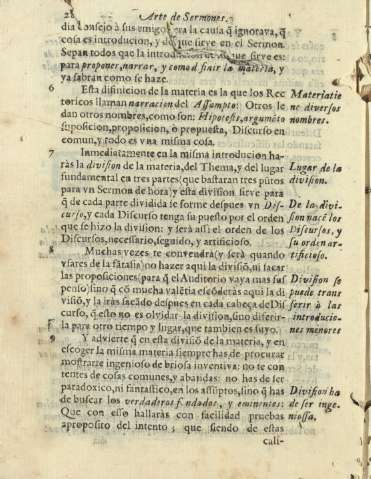 28 Arte de Sermones.
dia consejo à sus amigos era la causa q̃ ignorava, q̃
cosa es introducion, y de que sirve en el Sermon.
Sepan todos que la introducion es, que sirve es:
para proponer, narrar, y como difinir la materia, y
ya sabran como se haze.
6 Esta difinicion de la materia es la que los Rec Materia tie
toricos llaman narracion del Assumpto: Otros le ne diversos
dan otros nombres, como son: Hipotesis, argumẽto nombres.
suposicion, proposicion, o propuesta, Discurso en
comun, y todo es vna misma cosa.
7 Inmediatamente en la misma introducion ha-
ràs la division de la materia, del Thema, y del lugar Lugar de la
fundamental en tres partes (que bastaran tres pũtos division.
para vn Sermon de hora) y esta division sirve para
q̃ de cada parte dividida se forme despues vn Dis- De la divi-
curso, y cada Discurso tenga su puesto por el orden sion nacẽ los
que se hizo la division: y serà assi el orden de los Discursos, y
Discursos, necessario, seguido, y artificioso. su orden ar-
8 Muchas vezes te convendrà (y serà quando tificioso.
vsares de la fatasia) no hazer aqui la divisiõ, ni sacar
las proposiciones (para q̃ el Auditorio vaya mas sus Division se
penso) sino q̃ cõ mucha valẽtia escõderàs aqui la di puede trans
visiõ, y la iràs sacãdo despues en cada cabeça de Dis ferir à las
curso, q̃ esto no es olvidar la division, sino diferir- introducio-
la para otro tiempo y lugar, que tambien es suyo. nes menores
9 Y advierte q̃ en esta divisiõ de la materia, y en
escoger la misma materia siempre has de procurar
mostrarte ingenioso de briosa inventiva: no te con
tentes de cosas comunes, y abatidas: no has de ser
paradoxico, ni fantastico, en los assũptos, sino q̃ has Division ha
de buscar los verdaderos fundados, y eminentes: de ser inge-
Que con esso hallaràs con facilidad pruebas niossa.
aproposito del intento; que siendo de estas
cali-